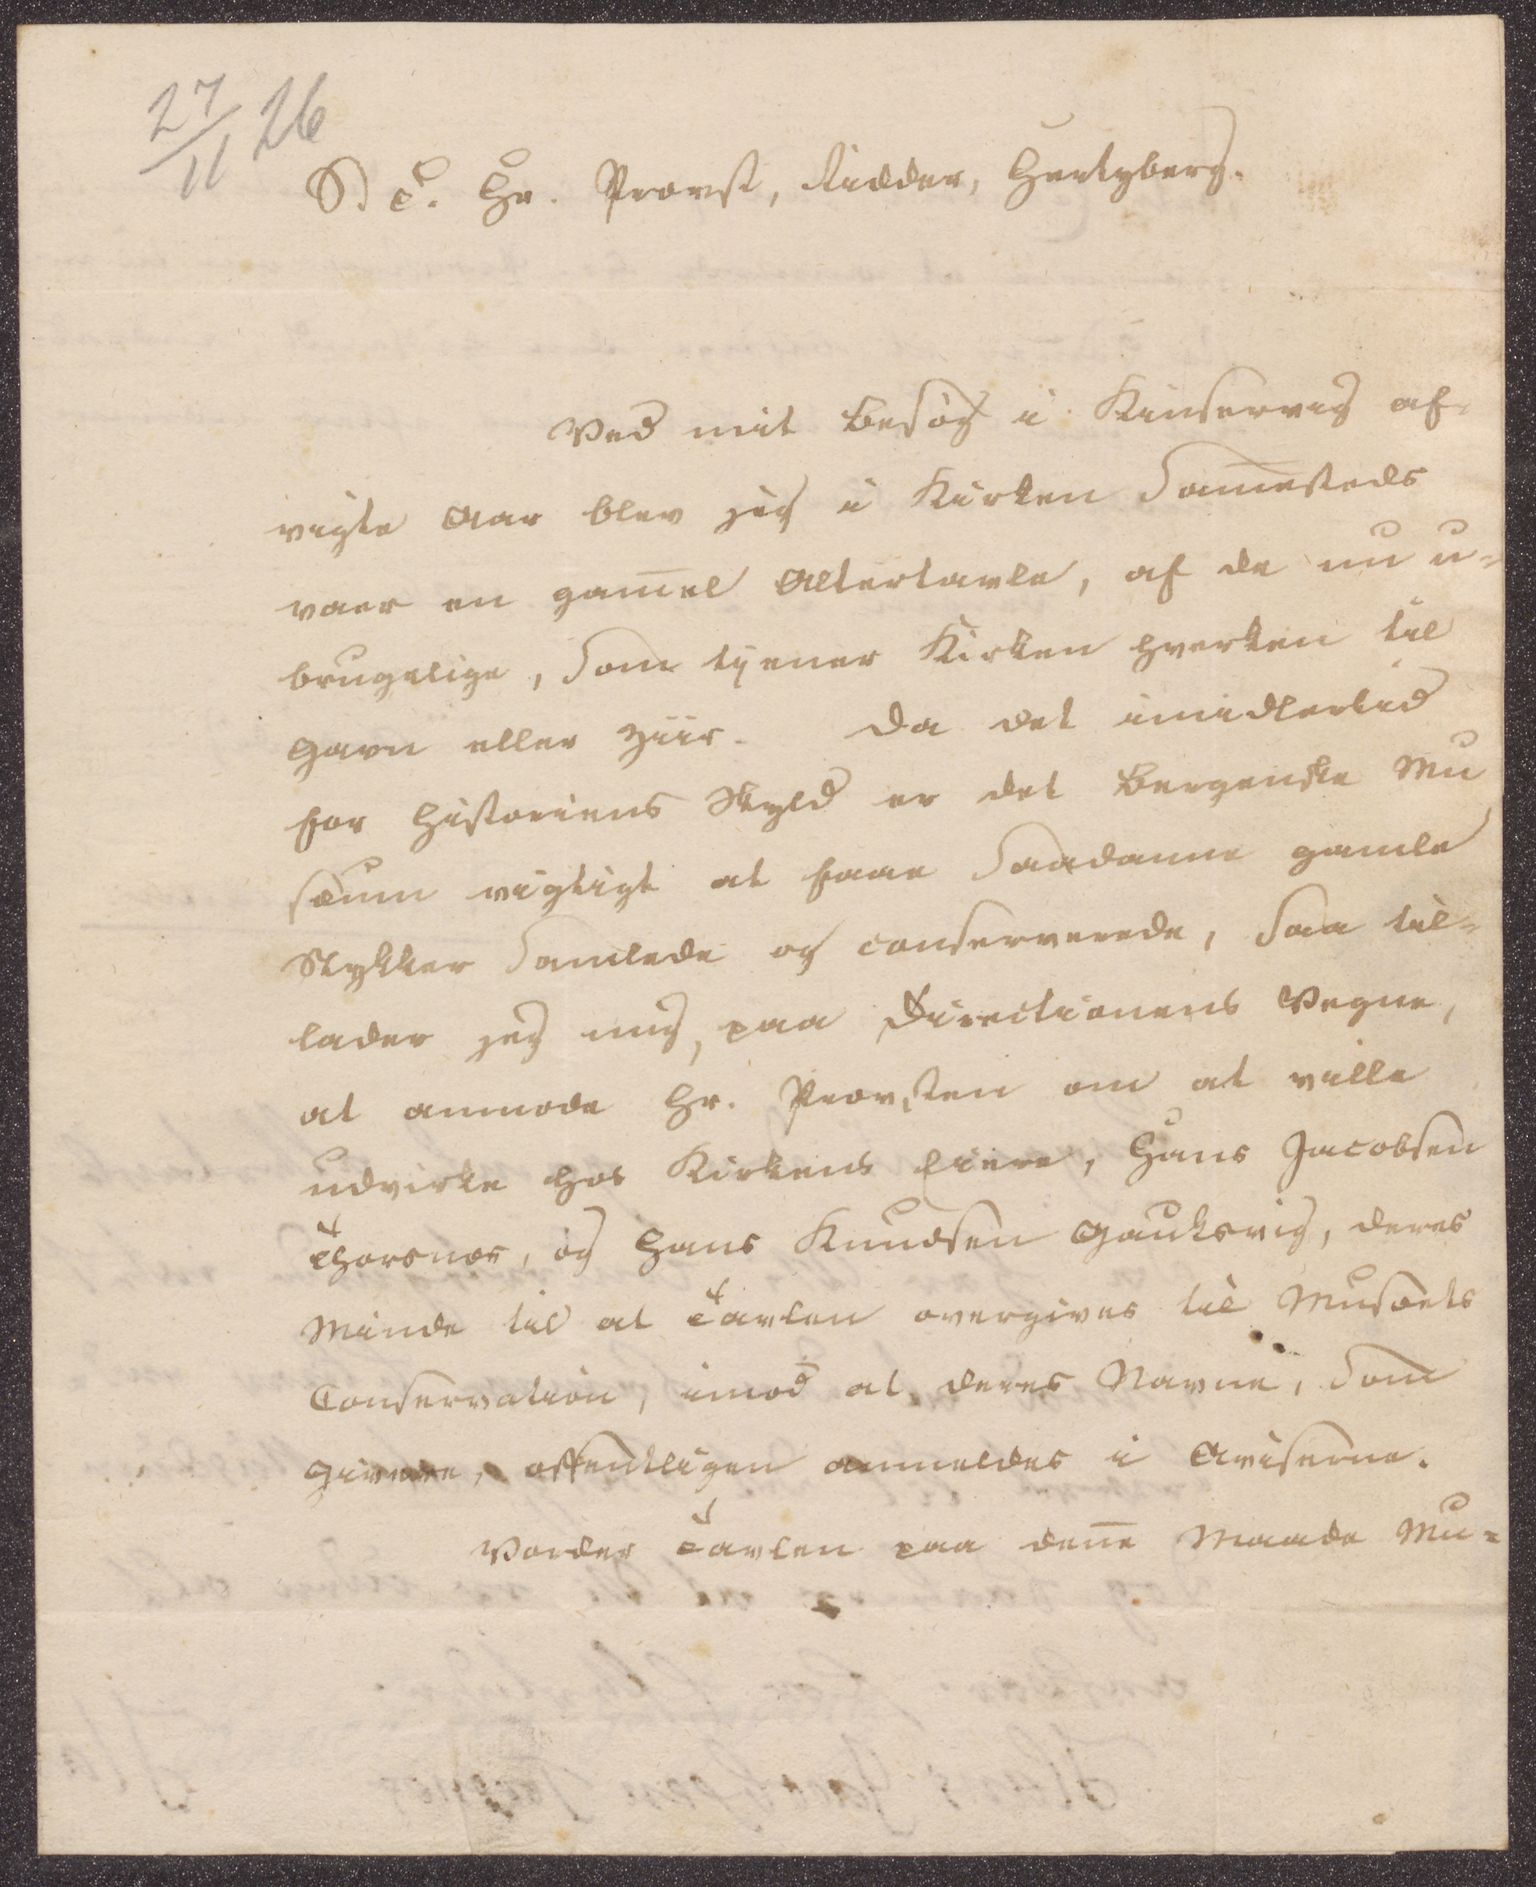 27/11 26
S. T. Hr. Provst, Ridder, Hertzberg.
Ved mit Besøg i Kinservig af-
vigte Aar blev jeg i Kirken sammesteds
vaer en gammel Altertavle, af de nu u-
brugelige, som tjener Kirken hverken til
Gavn eller Ziir. Da det imidlertid
for Historiens Skyld er det Bergenske Mu
sæum vigtigt at faae saadanne gamle
Stykker samlede og conserverede, saa til-
lader jeg mig, paa Directionens Vegne,
at anmode Hr. Provsten om at ville
udvirke hos Kirkens Eiere, Hans Jacobsen
Thorsnæs, og Hans Knudsen Gauksvig, deres
Minde til at Tavlen overgives til Musæets
Conservation, imod at deres Navne, som
Givere, offentligen anmeldes i Aviserne.
Vorder Tavlen paa denne Maade Mu-